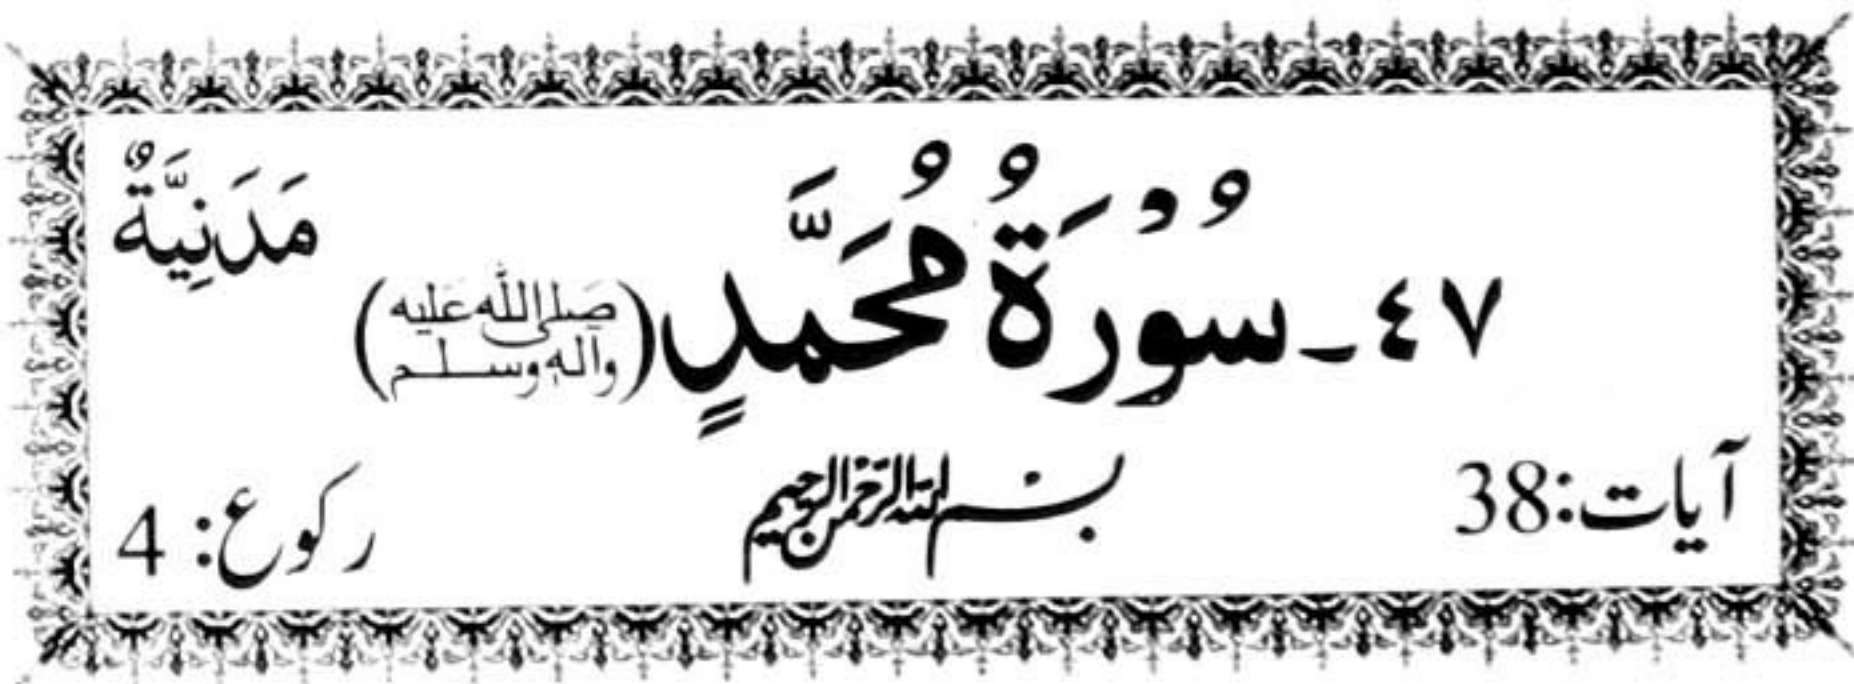 ٤٧ـ سُوْرَةُ مُحَمَّدٍ (صلى الله عليه وآله وسلم) مَدَنِيَّةٌ
آیات:38 بسم الله الرحمن الرحيم رکوع: 4